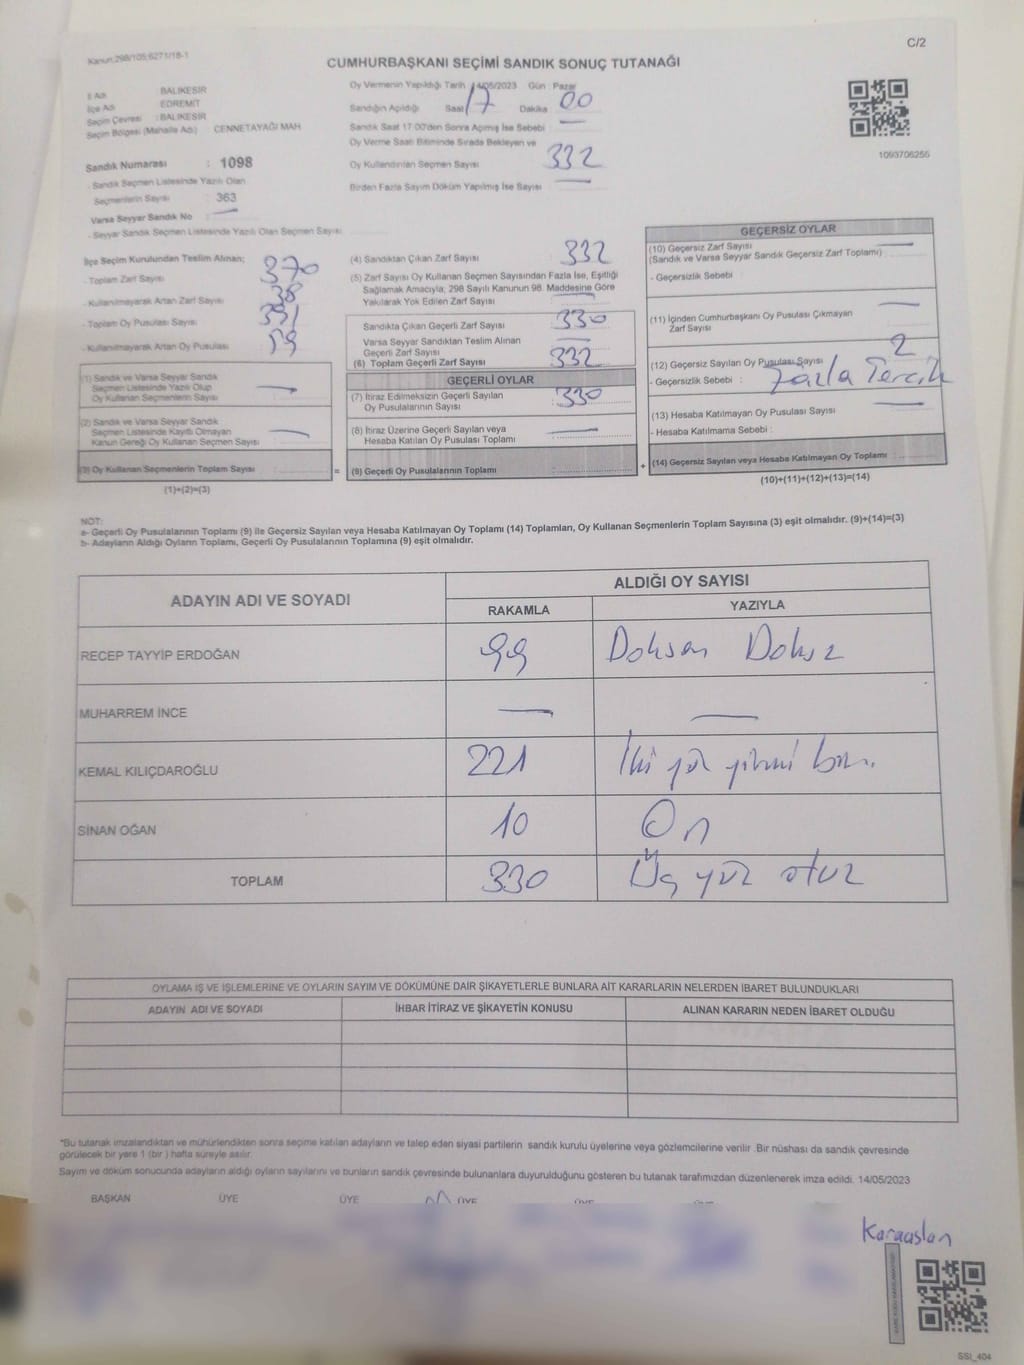 C/2
Kanun:298/105;6271/18-1
CUMHURBAŞKANI SEÇİMİ SANDIK SONUÇ TUTANAĞI
İl Adı : BALIKESİR
İlçe Adı : EDREMİT
Seçim Çevresi : BALIKESİR
Seçim Bölgesi (Mahalle Adı) : CENNETAYAĞI MAH
Sandık Numarası : 1098
- Sandık Seçmen Listesinde Yazılı Olan
Seçmenlerin Sayısı : 363
Varsa Seyyar Sandık No
- Seyyar Sandık Seçmen Listesinde Yazılı Olan Seçmen Sayısı:
Oy Vermenin Yapıldığı Tarih : 14/05/2023 Gün : Pazar
Sandığın Açıldığı Saat 17 Dakika : 00
Sandık Saat 17:00'den Sonra Açılmış İse Sebebi :
Oy Verme Saati Bitiminde Sırada Bekleyen ve
Oy Kullandırılan Seçmen Sayısı 332
Birden Fazla Sayım Döküm Yapılmış İse Sayısı
1093706256
İlçe Seçim Kurulundan Teslim Alınan;
- Toplam Zarf Sayısı 370
- Kullanılmayarak Artan Zarf Sayısı 38
- Toplam Oy Pusulası Sayısı 391
- Kullanılmayarak Artan Oy Pusulası 59
(1) Sandık ve Varsa Seyyar Sandık
Seçmen Listesinde Yazılı Olup
Oy Kullanan Seçmenlerin Sayısı
(2) Sandık ve Varsa Seyyar Sandık
Seçmen Listesinde Kayıtlı Olmayan
Kanun Gereği Oy Kullanan Seçmen Sayısı
(3) Oy Kullanan Seçmenlerin Toplam Sayısı
(1)+(2)=(3)
(4) Sandıktan Çıkan Zarf Sayısı 332
(5) Zarf Sayısı Oy Kullanan Seçmen Sayısından Fazla İse, Eşitliği
Sağlamak Amacıyla; 298 Sayılı Kanunun 98. Maddesine Göre
Yakılarak Yok Edilen Zarf Sayısı
Sandıkta Çıkan Geçerli Zarf Sayısı 330
Varsa Seyyar Sandıktan Teslim Alınan
Geçerli Zarf Sayısı
(6) Toplam Geçerli Zarf Sayısı 332
GEÇERLİ OYLAR
(7) İtiraz Edilmeksizin Geçerli Sayılan
Oy Pusulalarının Sayısı : 330
(8) İtiraz Üzerine Geçerli Sayılan veya
Hesaba Katılan Oy Pusulası Toplamı
= (9) Geçerli Oy Pusulalarının Toplamı
GEÇERSİZ OYLAR
(10) Geçersiz Zarf Sayısı
(Sandık ve Varsa Seyyar Sandık Geçersiz Zarf Toplamı)
- Geçersizlik Sebebi :
(11) İçinden Cumhurbaşkanı Oy Pusulası Çıkmayan
Zarf Sayısı
(12) Geçersiz Sayılan Oy Pusulası Sayısı 2
- Geçersizlik Sebebi : Fazla Tercih
(13) Hesaba Katılmayan Oy Pusulası Sayısı
- Hesaba Katılmama Sebebi :
+ (14) Geçersiz Sayılan veya Hesaba Katılmayan Oy Toplamı :
(10)+(11)+(12)+(13)=(14)
NOT:
a- Geçerli Oy Pusulalarının Toplamı (9) ile Geçersiz Sayılan veya Hesaba Katılmayan Oy Toplamı (14) Toplamları, Oy Kullanan Seçmenlerin Toplam Sayısına (3) eşit olmalıdır. (9)+(14)=(3)
b- Adayların Aldığı Oyların Toplamı, Geçerli Oy Pusulalarının Toplamına (9) eşit olmalıdır.
ADAYIN ADI VE SOYADI ALDIĞI OY SAYISI
RAKAMLA YAZIYLA
RECEP TAYYİP ERDOĞAN 99 Doksan Dokuz
MUHARREM İNCE
KEMAL KILIÇDAROĞLU 221 İki yüz yirmi bir.
SİNAN OĞAN 10 On
TOPLAM 330 Üç yüz otuz
OYLAMA İŞ VE İŞLEMLERİNE VE OYLARIN SAYIM VE DÖKÜMÜNE DAİR ŞİKAYETLERLE BUNLARA AİT KARARLARIN NELERDEN İBARET BULUNDUKLARI
ADAYIN ADI VE SOYADI İHBAR İTİRAZ VE ŞİKAYETİN KONUSU ALINAN KARARIN NEDEN İBARET OLDUĞU
*Bu tutanak imzalandıktan ve mühürlendikten sonra seçime katılan adayların ve talep eden siyasi partilerin sandık kurulu üyelerine veya gözlemcilerine verilir .Bir nüshası da sandık çevresinde
görülecek bir yere 1 (bir ) hafta süreyle asılır.
Sayım ve döküm sonucunda adayların aldığı oyların sayılarını ve bunların sandık çevresinde bulunanlara duyurulduğunu gösteren bu tutanak tarafımızdan düzenlenerek imza edildi. 14/05/2023
BAŞKAN ÜYE ÜYE ÜYE ÜYE ÜYE
Karaaslan
SSI_404